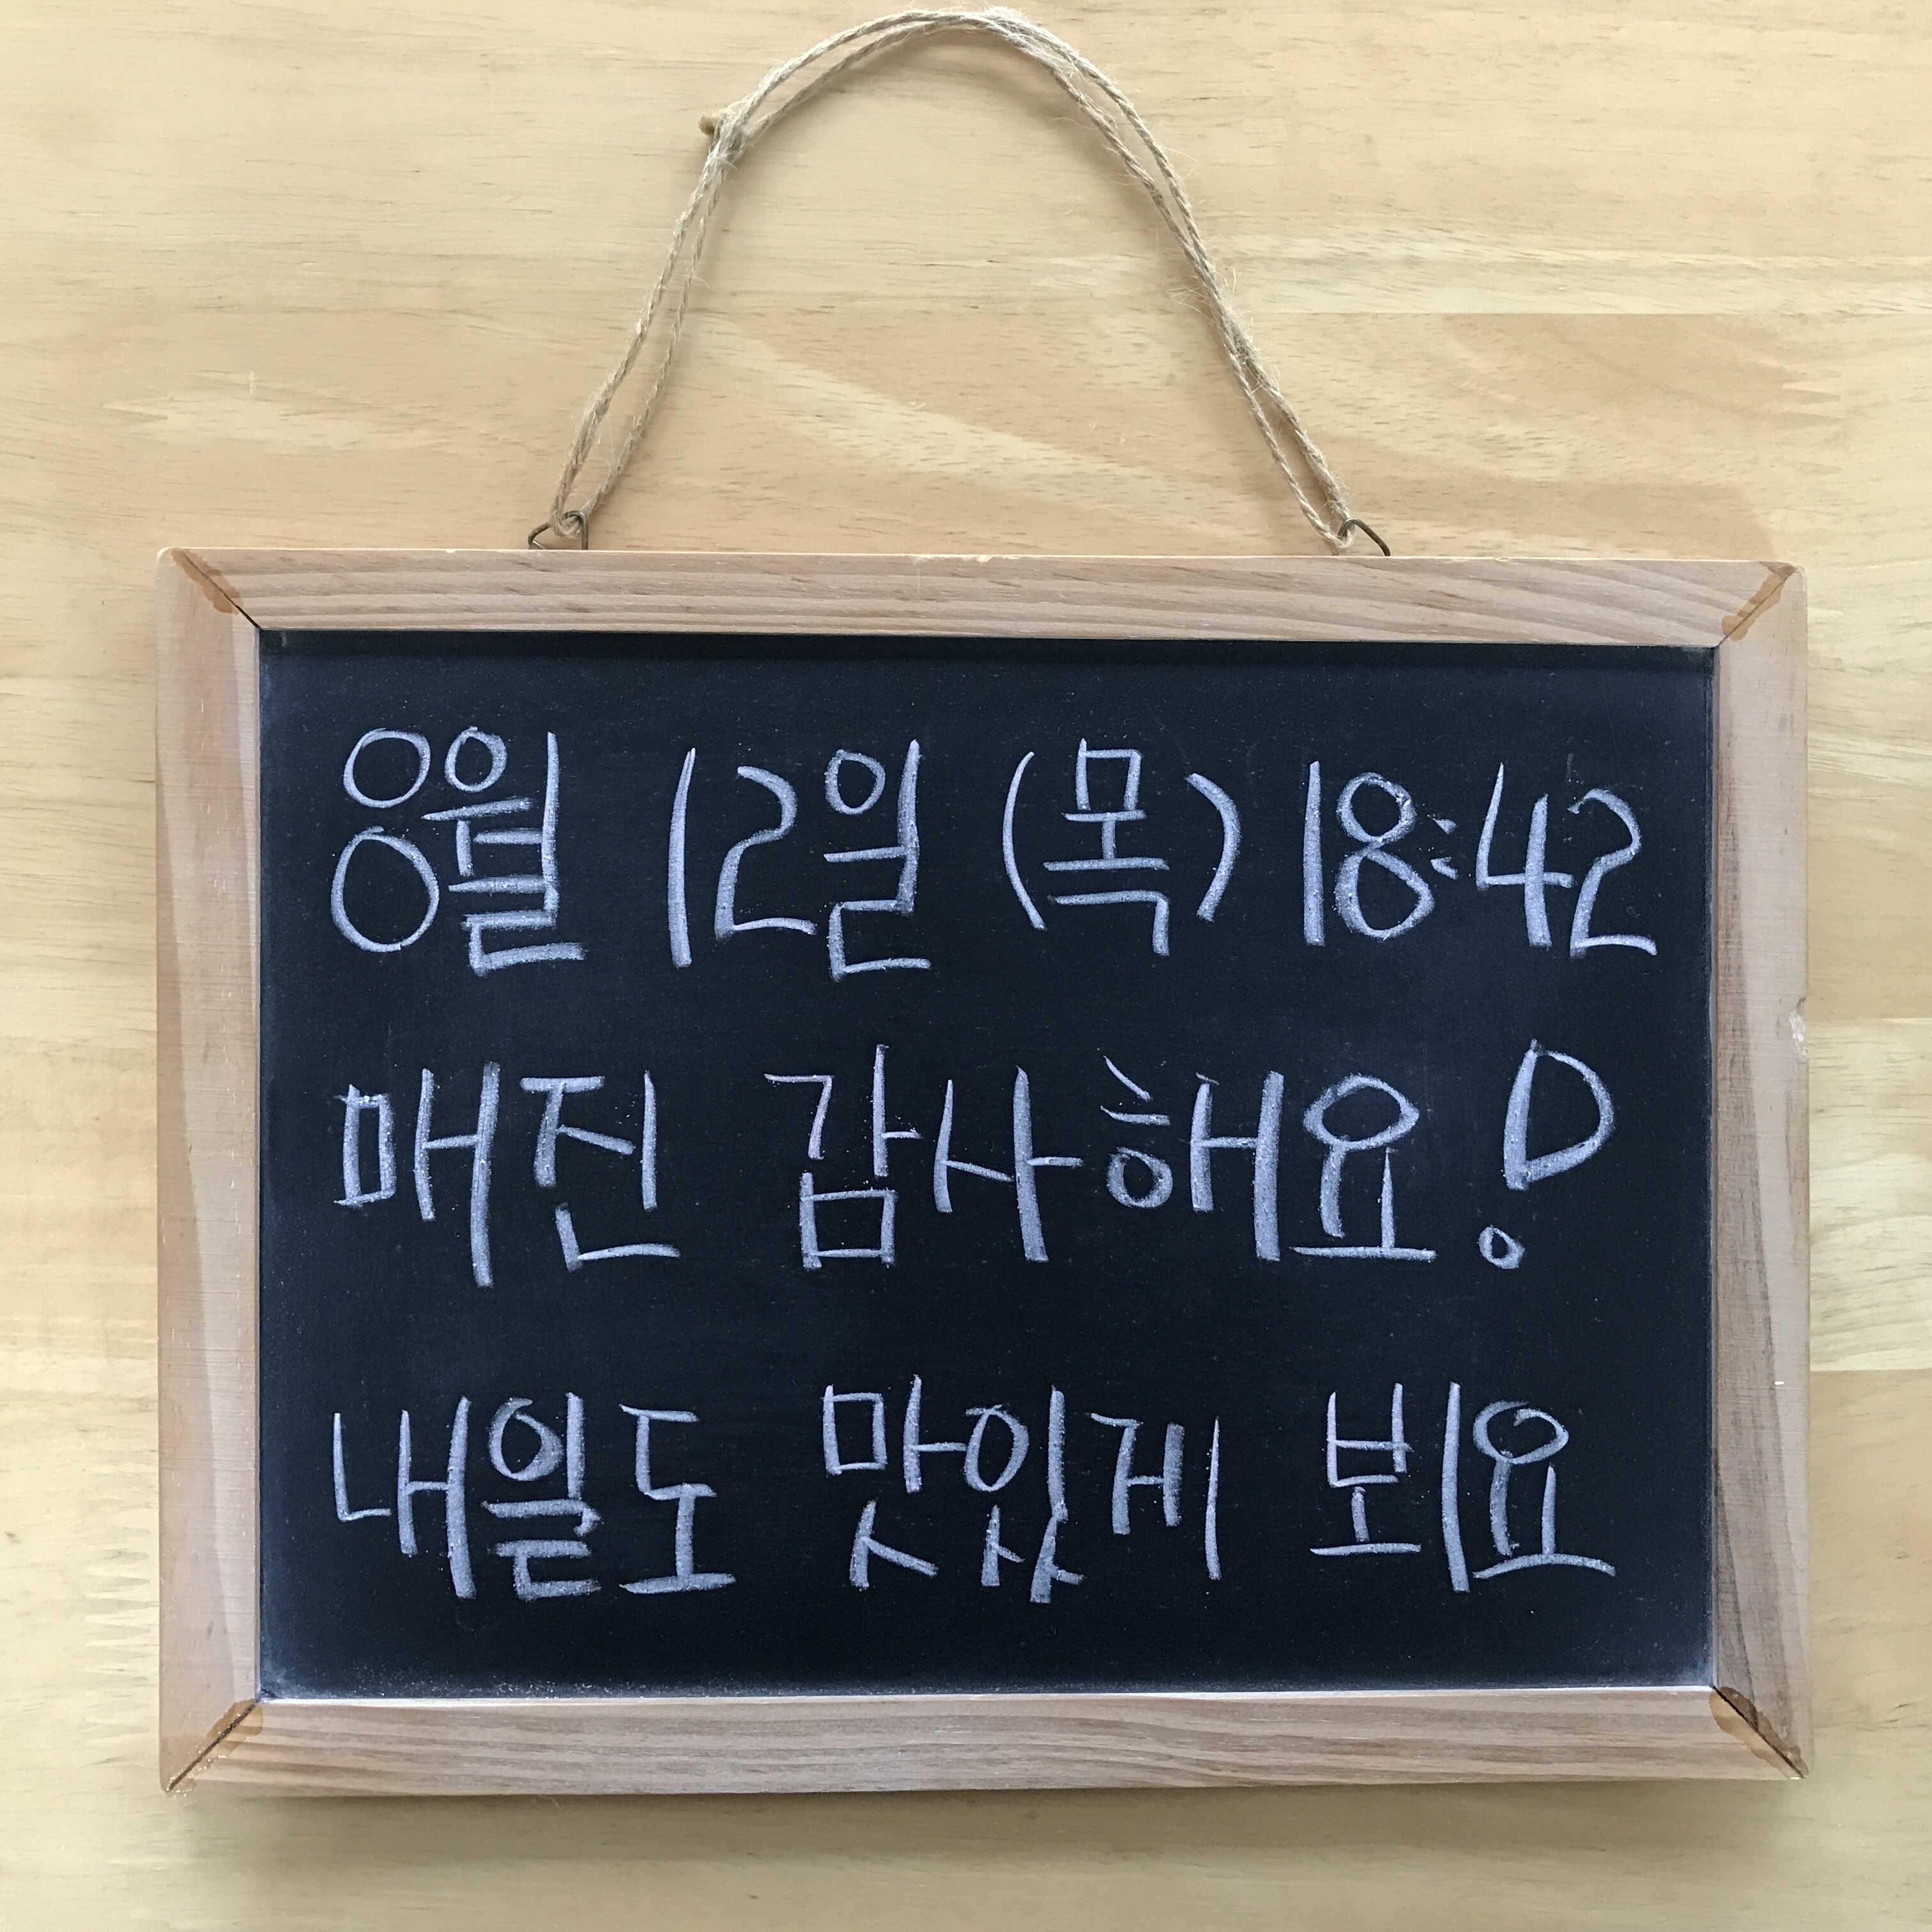 8월 12일 (목) 18:42
매진 감사해요!
내일도 맛있게 뵈요